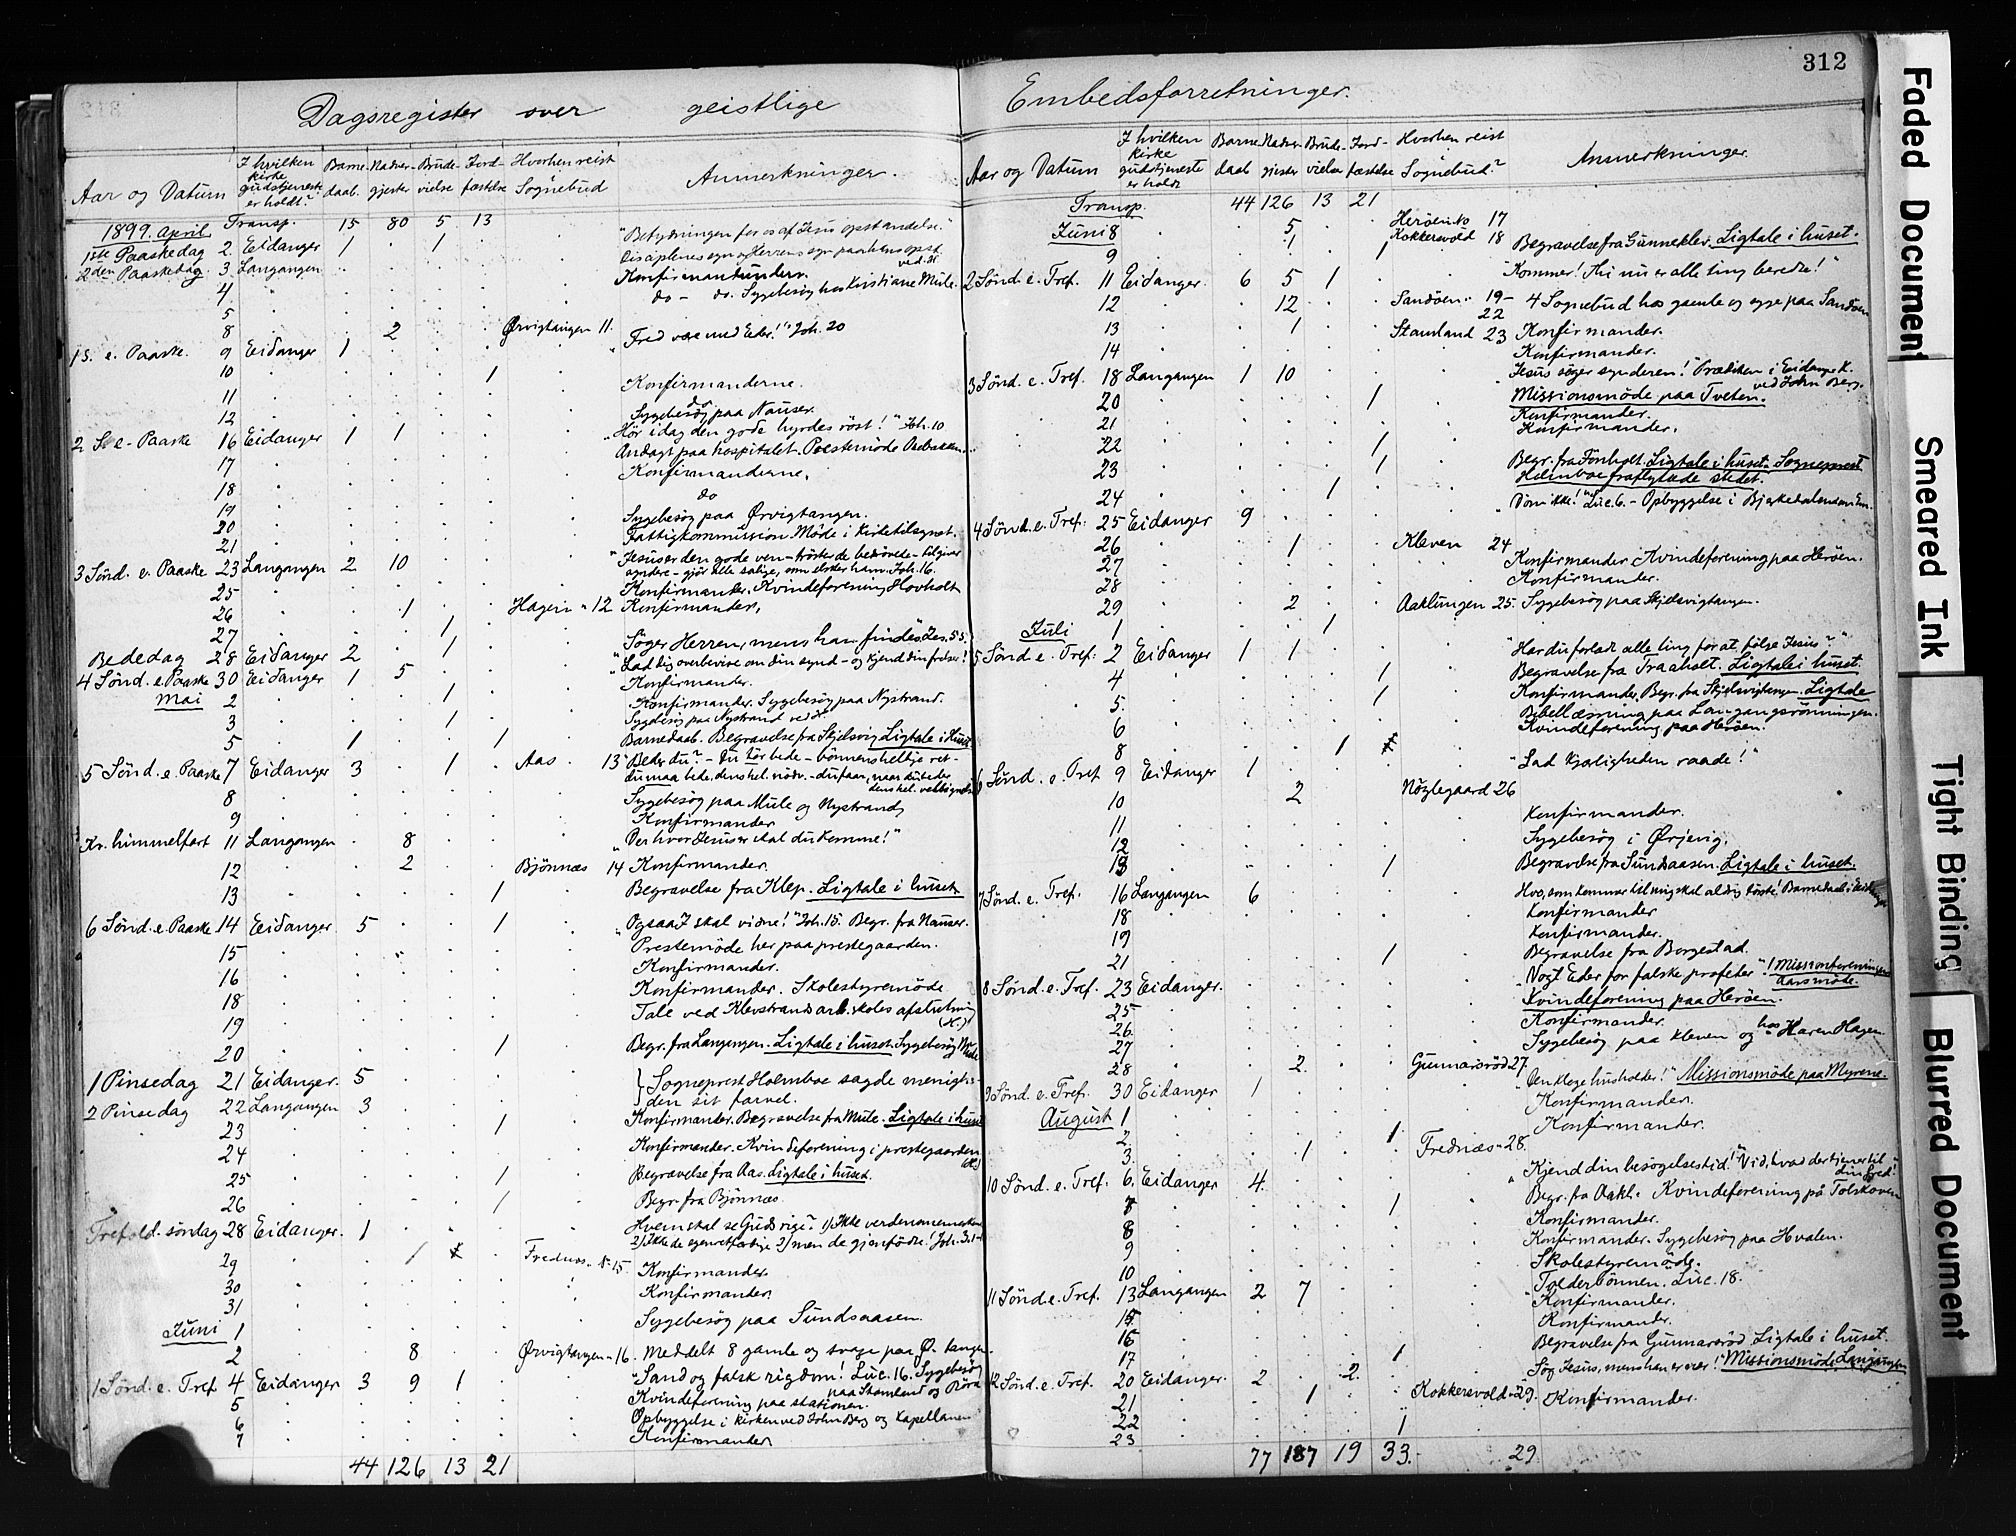 312
Dagsregister over geistlige Embedsforretninger.
Aar og Datum
I hvilken kirke gudstjeneste er holdt?
Barnedaab.
Nadvergjester
Brudevielse
Jordfæstelse
Hvorhen reist Sognebud
Anmerkninger.
1899. April Transp. 15 80 5 13
1ste Paaskedag 2. Eidanger 1 . 1 "Betydningen for os af Jesu opstandelse."
2den Paaskedag 3 Langangen
4 Konfirmantunderv.
5 do - do. Sygebesøg hos Kristiane Mule.
8 2 Ørvigtangen 11.
1 S. e. Paaske. 9 Eidanger 1 "Fred være med Eder!" Joh. 20
10 1
11 Konfirmanderne.
12 do Sygebesøg paa Nauser.
2 S. e. Paaske 16 Eidanger 1 1 "Hør i dag den gode hyrdes røst!" Joh. 10
17 Andagt paa hospitalet. Prestemøde
18 Konfirmanderne.
19 do
20 Sygebesøg paa Ørvigtangen.
21 Fattigkommission Møde i Kirketilsynet.
3 Sønd. e. Paaske 23 Langangen 2 10 "Jesus er den gode ven - trøster de bedrøvede - tilgiver syndere - gjør alle salige, som elsker ham. Joh. 16.
25 Konfirmander. Kvindeforening Hovholt
26 1 Hagen " 12 Konfirmander.
27 1
Bededag 28 Eidanger 2 1 "Søger Herren, mens han findes" Jes. 55.
4 Sønd. e. Paaske 30 Eidanger 1 5 "Lad dig overbevise om din synd - og kjend din frelser!"
Mai 2 1 Konfirmander.
3 1 Konfirmander. Sygebesøg paa Nystrand.
Sygebesøg paa Nystrand
5 1 1 Barnedaab. Begravelse fra Skjelsvig Ligtale i Huset
5 Sønd. e. Paaske 7 Eidanger 3 1 Aas 13 "Beder du? - Du tør bede - bønnens hellige ret -
8 Sygebesøg paa Mule og Nystrand
9 Konfirmander
Kr. himmelfart 11 Langangen 8 "Der hvor Jesus er skal du komme!"
12 2 Bjönnæs 14 Konfirmander.
13 1 Begravelse fra Klep. Ligtale i huset
6 Sønd. e. Paaske 14 Eidanger 5 1 "Ogsaa I skal vidne!" Joh. 15. Begr. fra Nauser.
15 Prestemøde her paa prestegaarden.
16 Konfirmander.
18 Konfirmander. Skolestyremøde
19 Tale ved Klevstrands arb. skoles afslutning
20 1 Begr. fra Langangen. Ligtale i huset. Sygebesøg Mule
1 Pinsedag 21 Eidanger. 5 Sogneprest Holmboe sagde menighe-
2 Pinsedag 22 Langangen 3 den sit farvel.
23 1 Konfirmander. Begravelse fra Mule. Ligtale i huset
24 Konfirmander. Kvindeforening i prestegaarden
25 1 Begravelse fra Aas. Ligtale i huset.
26 1 Begr. fra Bjønnæs.
Trefold. söndag 28 Eidanger. 1 Hvem skal se Guds rige? 1) Ikke verdensmennesker 2) Ikke de egenretfærdige 3) men de gjenfødte! Joh. 3.1-
29 1 Frednæs " 15. Konfirmander
30 Konfirmander.
31 Sygebesøg paa Sundsaasen.
Juni 1
2 8 Ørvigtangen - 16. Meddelt 8 gamle og svage paa Ø. tangen
1 Sønd. e. Tref. 4 Eidanger 3 9 1 "Sand og falsk rigdom! Luc. 16. Sygebesøg paa Stamland og Röra
5 Kvindeforening paa stationen.
6 Opbyggelse i kirken ved John Berg og Kapellanen
7 Konfirmander
44 126 13 21
Aar og Datum
I hvilken kirke gudstjeneste er holdt
Barnedaab
Nadvergjester
Brudevielse
Jordfæstelse
Hvorhen reist Sognebud?
Anmerkninger.
Transp. 44 126 13 21
Juni 8 5 Herøen No 17
9 1 1 Kokkersvold 18 Begravelse fra Gunneklev. Ligtale i huset.
2 Sønd. e. Tref. 11 Eidanger. 6 5 1 "Kommer! Thi nu er alle ting beredte!"
12 12 Sandöen 19-22 4 Sognebud hos gamle og syge paa Sandöen
13 1 Stamland 23 Konfirmander.
14 Konfirmander.
3 Sønd. e. Tref. 18 Langangen 1 10 "Jesus søger synderen!" Prædiken i Eidanger K. ved John Berg.
20 1 Missionsmøde paa Tveten.
21 Konfirmander.
22 1 Konfirmander.
23 1 Begr. fra Fönholt. Ligtale i huset. Sogneprest
24 1 Holmboe fraflyttede stedet.
4 Sønd. e. Tref. 25 Eidanger 9 "Døm ikke!" Luc. 6. - Opbyggelse i Bjerkedalen
26 1 Kleven 24
27 Konfirmander. Kvindeforening paa Herøen.
28 Konfirmander.
29 2 Aaklungen 25. Sygebesøg paa Skjelsvigtangen.
Juli 1 1
5 Sønd. e. Tref. 2 Eidanger 1 1 "Har du forladt alle ting for at følge Jesus?"
4 1 Begravelse fra Traaholt. Ligtale i huset.
5. 1 Konfirmander. Begr. fra Skjelsvigtangen. Ligtale
6 Bibellæsning paa Langangsrønningen.
Kvindeforening paa Herøen.
8 1
6 Sønd. e. Tref 9 Eidanger 1 "Lad kjærligheden raade!"
10 2 Nøzlegaard 26
11 Konfirmander.
12 Sygebesøg i Ørjevig.
13 1 Begravelse fra Sundsaasen. Ligtale i huset.
7 Sønd. e. Tref. 16 Langangen 6 Hvo, som kommer til mig skal aldrig tørste! Barnedaab i Eidanger
18 Konfirmander
19 Konfirmander.
21 1 Begravelse fra Borgestad.
8 Sønd. e. Tref. 23 Eidanger. "Vogt Eder for falske profeter"! Missionsforeningens aarsmøde.
25 Kvindeforening paa Herøen.
26. Konfirmander.
27 Sygebesøg paa Kleven og hos Karen Hagen
28 2 Gunnarsröd 27
9 Sønd. e. Tref. 30 Eidanger 1 "Den kloge husholder!" Missionsmøde paa Myrene.
August 1 Konfirmander.
2 1 Konfirmander.
3 1 Frednæs " 28.
10 Sønd. e. Tref. 6 Eidanger 4. "Kjend din besøgelsestid!" Vid, hvad der tjener til din fred!
7 1 Begr. fra Aakl. Kvindeforening på Tolskoven
8 Konfirmander.
9 Konfirmander. Sygebesøg paa Hvalen.
10 Skolestyremöde.
11 Sønd. e. Tref. 13 Langangen 2 7 Tolderbønnen. Luc. 18.
15 Konfirmander.
16 Konfirmander.
17 1 Begravelse fra Gunnarsröd Ligtale i huset.
12 Sønd. e. Tref. 20 Eidanger. 2 2 Søg Jesus, mens han er nær! Missionsmøde Langangen
21 1 Kokkersvold " 29. Konfirmander.
22 1
23
77 187 19 33. 29.
Faded Document
Smeared Ink
Tight Binding
Blurred Document